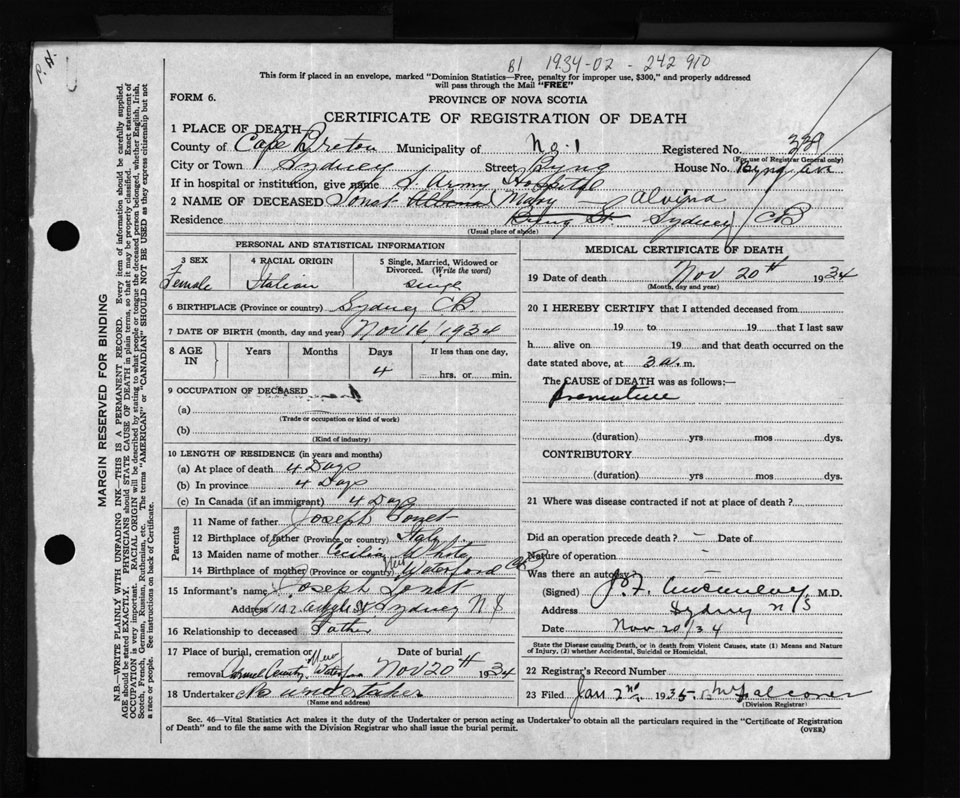 P. H.
B1 1934-02 - 242 910
This form if placed in an envelope, marked "Dominion Statistics—Free, penalty for improper use, $300," and properly addressed
will pass through the Mail "FREE"
FORM 6.
PROVINCE OF NOVA SCOTIA
CERTIFICATE OF REGISTRATION OF DEATH
1 PLACE OF DEATH
County of Cape Breton Municipality of No. 1 Registered No.
(For use of Registrar General only)
City or Town Sydney Street Byng House No. Byng Ave
If in hospital or institution, give name S. Army Hospital
2 NAME OF DECEASED Mary Alvina
Residence Byng St. Sydney CB
(Usual place of abode)
PERSONAL AND STATISTICAL INFORMATION
3 SEX
Female
4 RACIAL ORIGIN
Italian
5 Single, Married, Widowed or
Divorced. (Write the word)
single
6 BIRTHPLACE (Province or country) Sydney CB
7 DATE OF BIRTH (month, day and year) Nov 16, 1934
8 AGE IN Years Months Days If less than one day,
4 hrs. or min.
9 OCCUPATION OF DECEASED
(a)
(Trade or occupation or kind of work)
(b)
(Kind of industry)
10 LENGTH OF RESIDENCE (in years and months)
(a) At place of death 4 Days
(b) In province 4 Days
(c) In Canada (if an immigrant) 4 Days
Parents
11 Name of father Joseph
12 Birthplace of father (Province or country) Italy
13 Maiden name of mother Cecilia White
14 Birthplace of mother (Province or country) New Waterford CB
15 Informant's name Joseph
Address 142 Sydney N S
16 Relationship to deceased Father
17 Place of burial, cremation or removal New Waterford
Date of burial Nov 20th 1934
18 Undertaker No undertaker
(Name and address)
MEDICAL CERTIFICATE OF DEATH
19 Date of death Nov 20th 1934
(Month, day and year)
20 I HEREBY CERTIFY that I attended deceased from
19 to 19 that I last saw
h alive on 19 and that death occurred on the
date stated above, at 3 a. m.
The CAUSE of DEATH was as follows:—
Premature
(duration) yrs mos dys.
CONTRIBUTORY
(duration) yrs mos dys.
21 Where was disease contracted if not at place of death?
Did an operation precede death? - Date of
Nature of operation
Was there an autopsy?
(Signed) M.D.
Address Sydney N S
Date Nov 20/34
State the Disease causing Death, or in death from Violent Causes, state (1) Means and Nature
of Injury, (2) whether Accidental, Suicidal or Homicidal.
22 Registrar's Record Number
23 Filed Jan 2nd 1935
(Division Registrar)
Sec. 46—Vital Statistics Act makes it the duty of the Undertaker or person acting as Undertaker to obtain all the particulars required in the "Certificate of Registration
of Death" and to file the same with the Division Registrar who shall issue the burial permit.
(OVER)
MARGIN RESERVED FOR BINDING
N.B.—WRITE PLAINLY WITH UNFADING INK—THIS IS A PERMANENT RECORD. Every item of information should be carefully supplied.
AGE should be stated EXACTLY. PHYSICIANS should STATE CAUSE OF DEATH in plain terms, so that it may be properly classified. Exact statement of
OCCUPATION is very important. RACIAL ORIGIN will be described by stating to what people or tongue the deceased person belonged, whether English, Irish,
Scotch, French, German, Russian, Ruthenian, etc. The terms "AMERICAN" or "CANADIAN" SHOULD NOT BE USED as they express citizenship but not
a race or people. See instructions on back of Certificate.